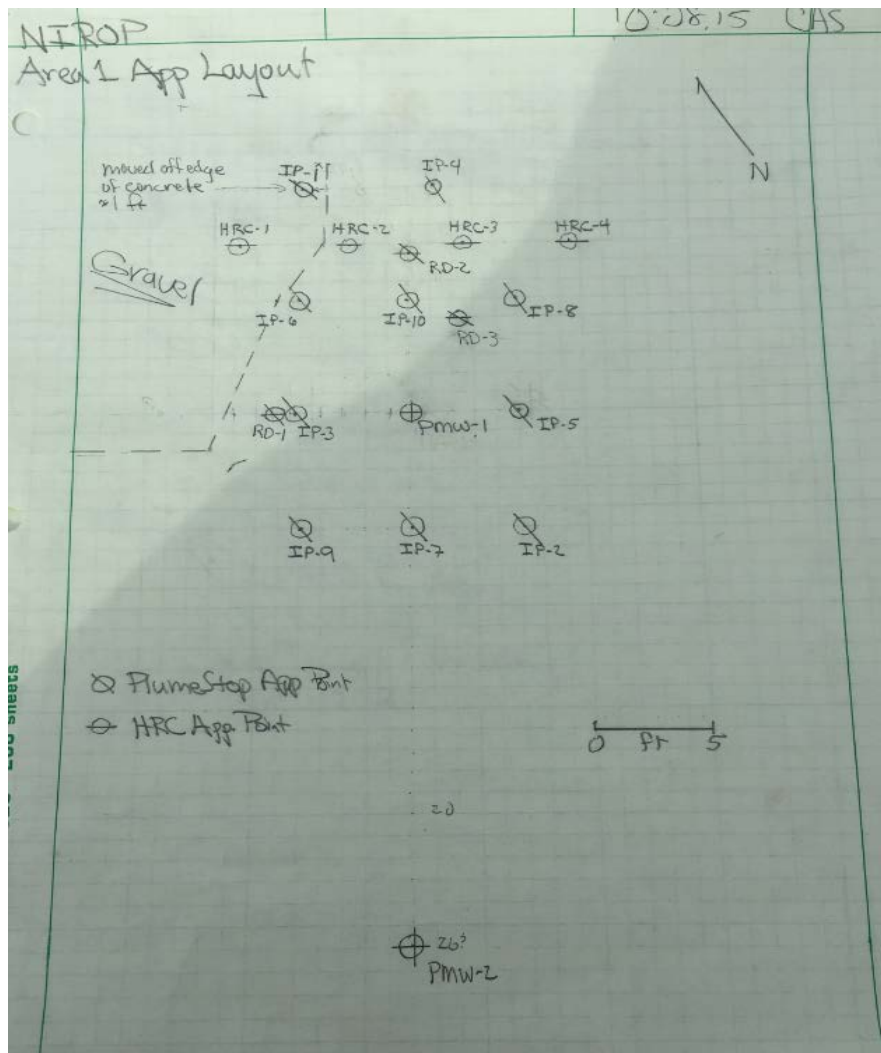 NIROP
10.08.15 CAS
Area 1 App Layout
N
moved off edge
of concrete
≈1 ft
IP-1
IP-4
HRC-1
HRC-2
HRC-3
HRC-4
RD-2
Gravel
IP-6
IP-10
IP-8
RD-3
RD-1
IP-3
PMW-1
IP-5
IP-9
IP-7
IP-2
PlumeStop App Point
HRC App Point
0 ft 5
20
26'
PMW-2
sheets